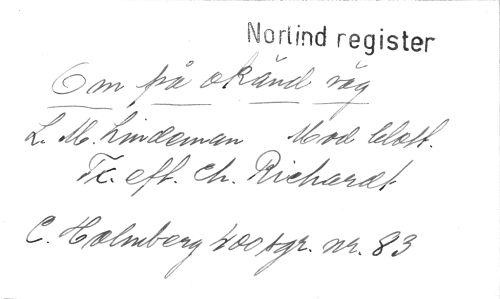 Norlind register
Om på okänd väg
L. M. Lindeman Mod
Tx. eft. Ch. Richardt
C. Holmberg 400 sgr. nr. 83